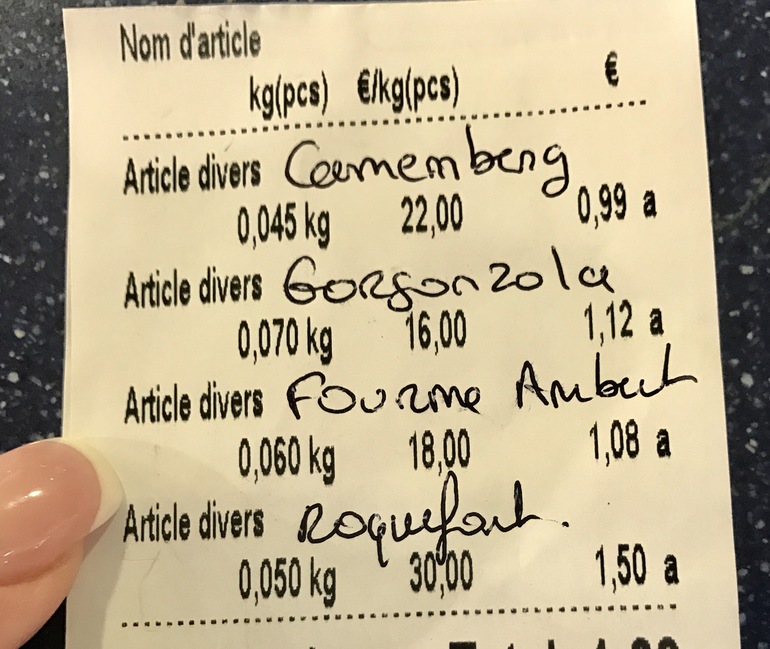 Nom d'article
kg(pcs) €/kg(pcs) €
Article divers Camemberg
0,045 kg 22,00 0,99 a
Article divers Gorgonzola
0,070 kg 16,00 1,12 a
Article divers Fourme Ambert
0,060 kg 18,00 1,08 a
Article divers Roquefort.
0,050 kg 30,00 1,50 a